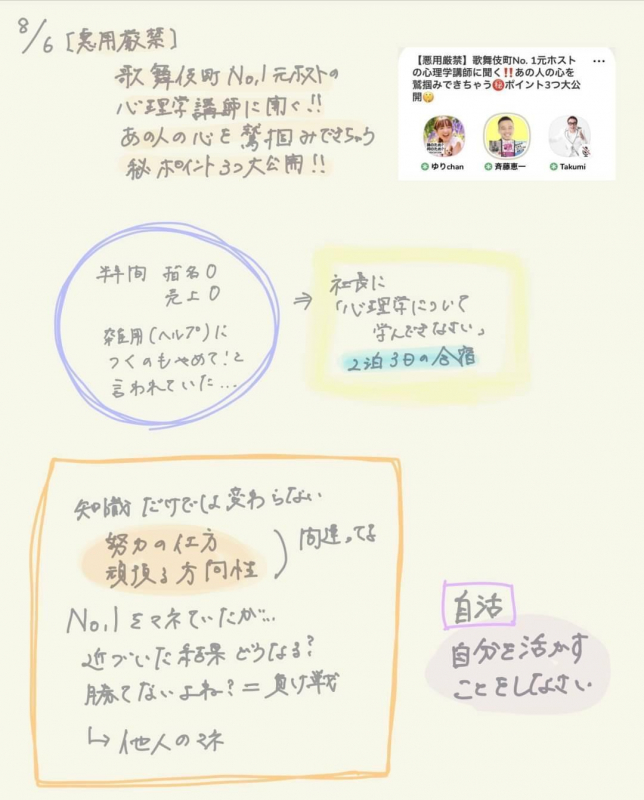 8/6 [悪用厳禁]
歌舞伎町 No,1 元ホストの
心理学講師に聞く!!
あの人の心を鷲掴みできちゃう
秘ポイント3つ大公開!!
【悪用厳禁】歌舞伎町No. 1元ホスト
の心理学講師に聞く‼️あの人の心を
鷲掴みできちゃう㊙️ポイント3つ大公
開🤫
ゆりchan
斉藤恵一
Takumi
半年間 指名0
売上0
雑用(ヘルプ)に
つくのもやめて!と
言われていた...
⇒
社長に
「心理学について
学んできなさい」
2泊3日の合宿
知識だけでは変わらない
努力の仕方
頑張る方向性
間違ってる
No,1をマネていたが...
近づいた結果どうなる?
勝てないよね?=負け戦
↳ 他人のマネ
自活
自分を活かす
ことをしなさい